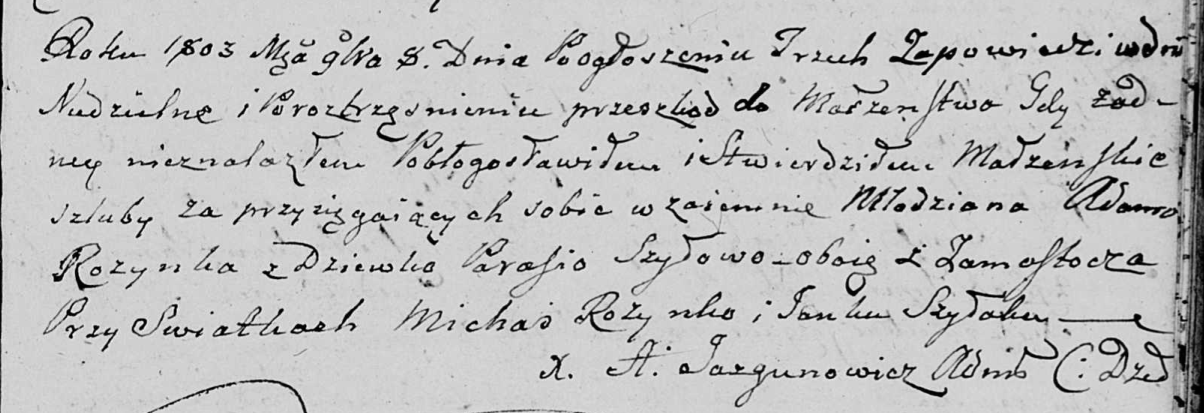 Roku 1803 Mca 9bra 8. Dnia Poogłoszeniu Trzech Zapowiedzi wdni
Niedzielne i Poroztrząsnieniu przeszkod do Małzenstwa Gdy zad-
ney nieznalazłem Pobłogosławiłem i Stwierdziłem Małzenskie
szluby za przysięgaiących sobie wzaiemnie Młodziana Adama
Rozynka z Dziewko Parasio Szydowo - oboie z Zamostocza
Przy Swiatkach Michas Rozynko i Janku Szydaku
X. A: Jazgunowicz Adm C: Dzed